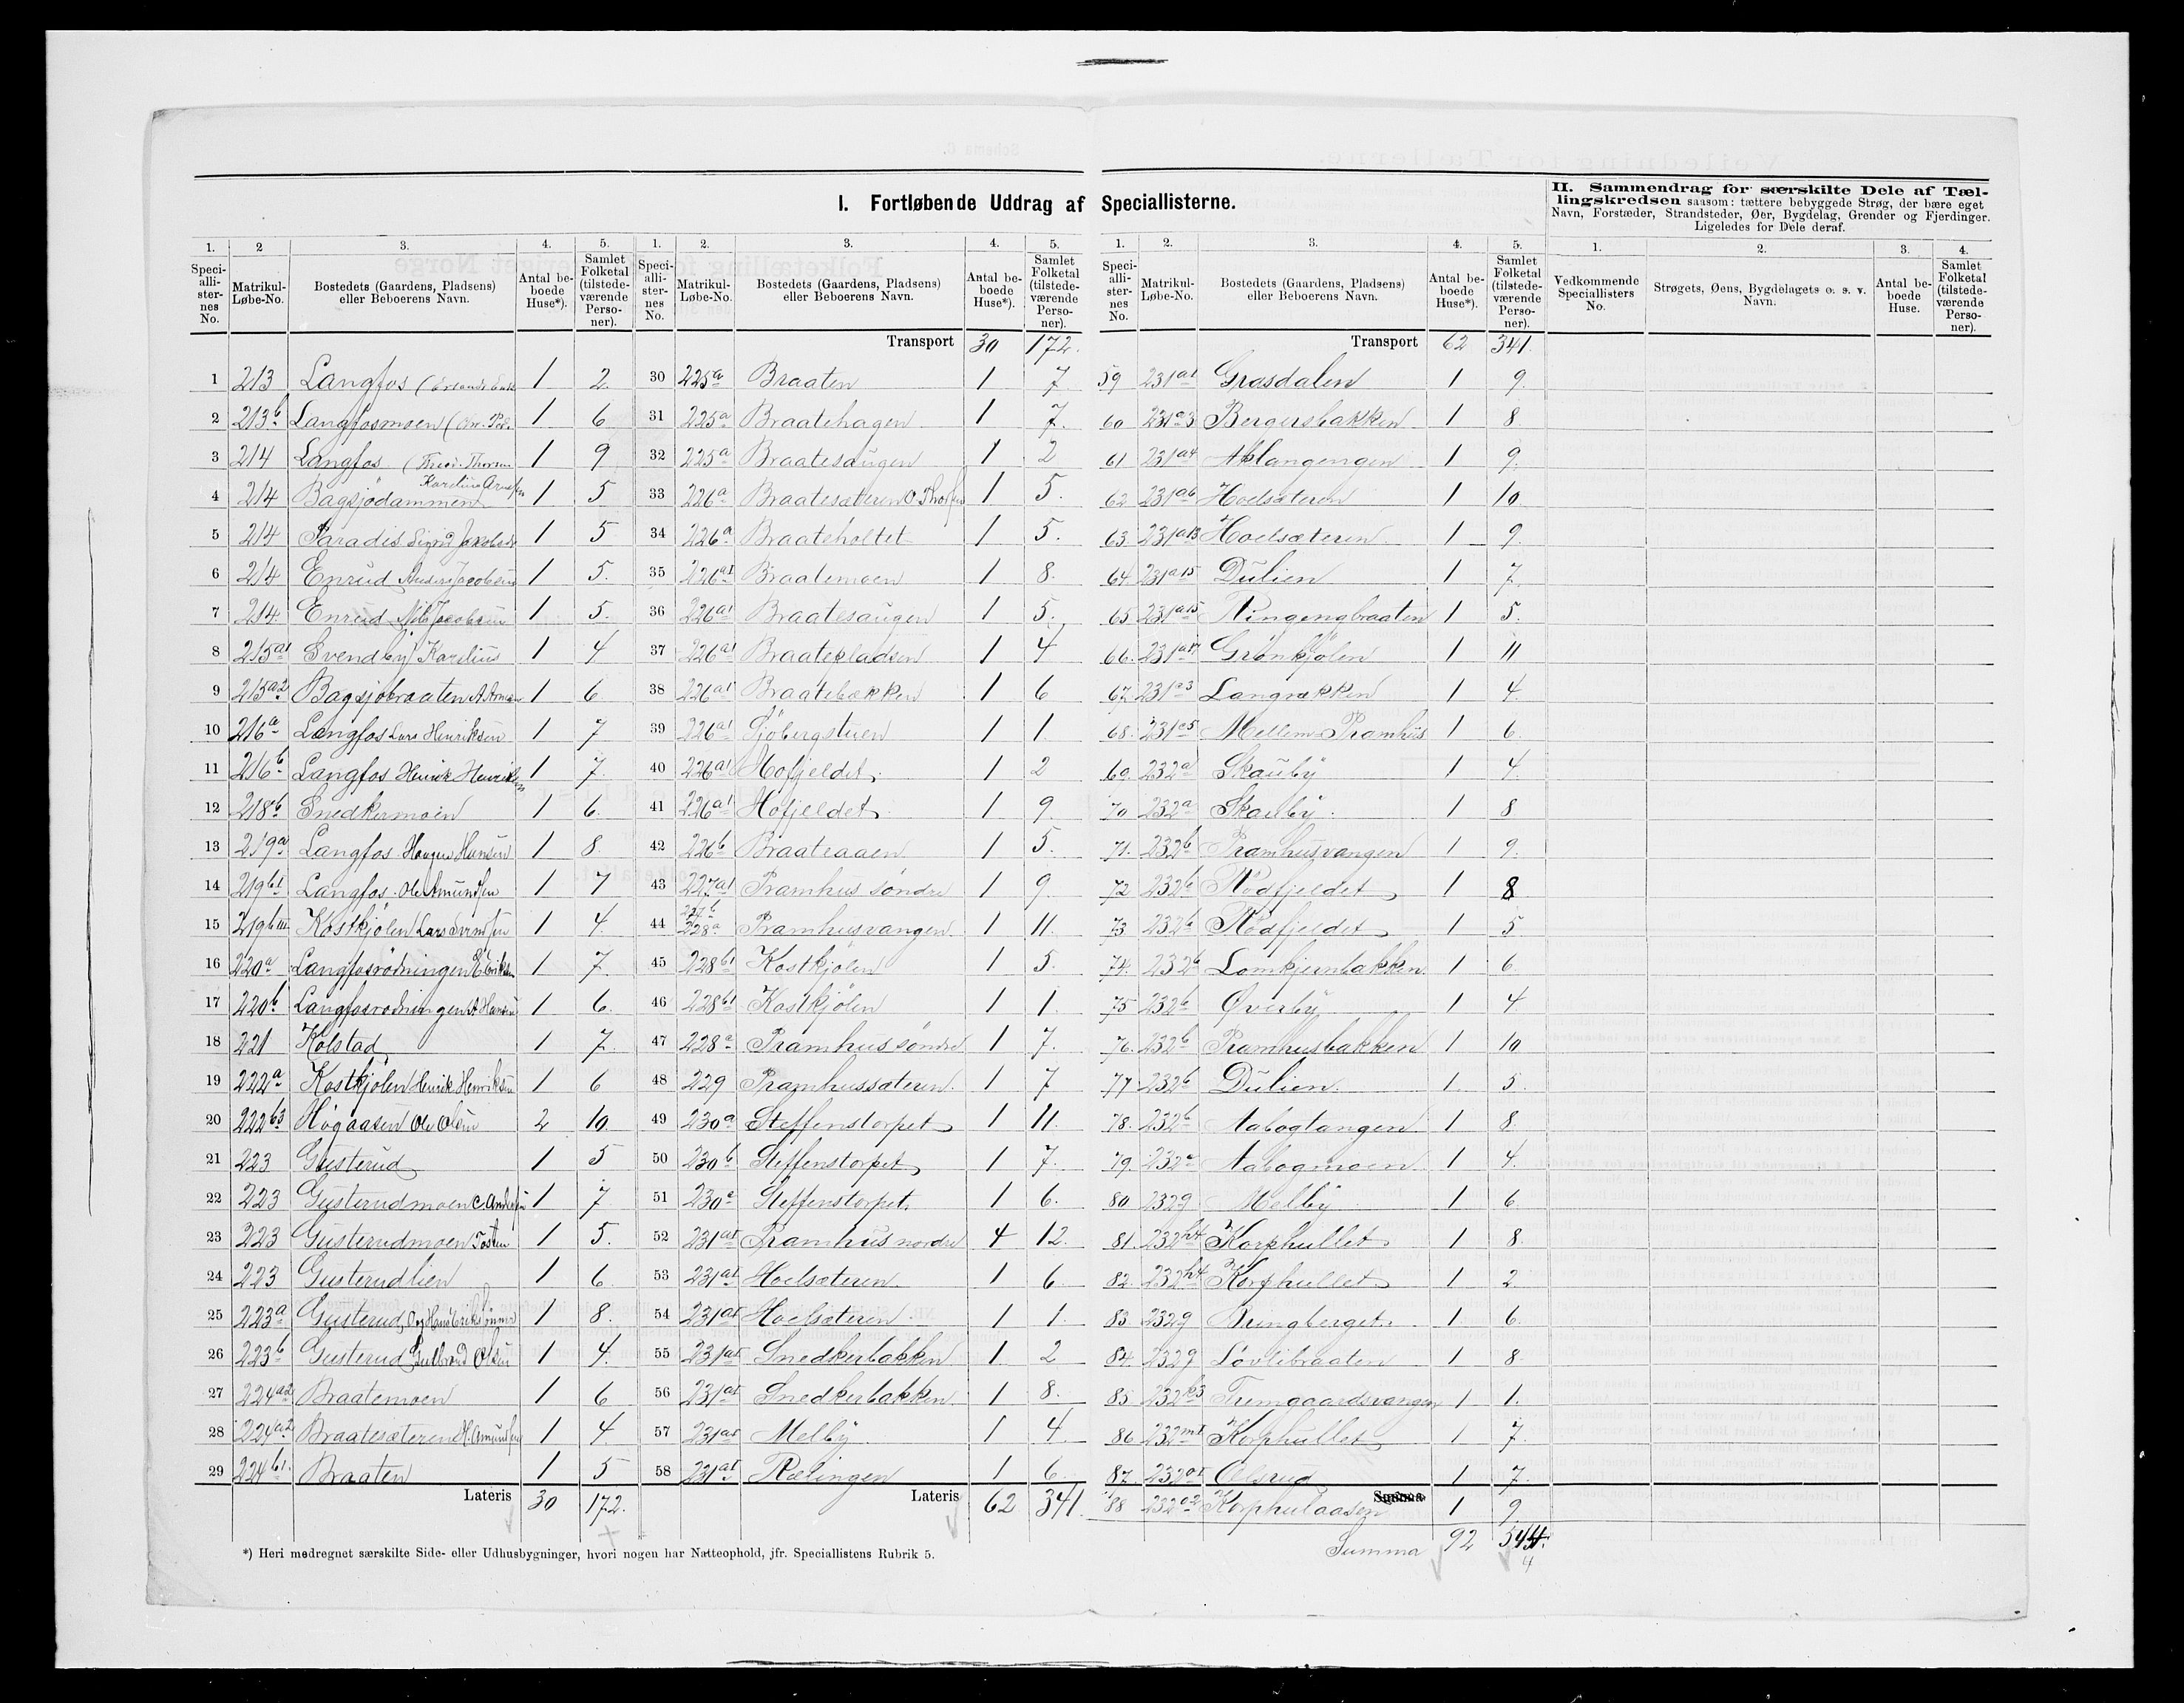 I. Fortløbende Uddrag af Speciallisterne.
II. Sammendrag for særskilte Dele af Tæl-
lingskredsen saasom: tættere bebyggede Strøg, der bære eget
Navn, Forstæder, Strandsteder, Øer, Bygdelag, Grender og Fjerdinger.
Ligeledes for Dele deraf.
1. 2 3. 4. 5.
Speci-alli-ster-nes No. Matrikul-Løbe-No. Bostedets (Gaardens, Pladsens) eller Beboerens Navn. Antal be-boede Huse*). Samlet Folketal (tilstede-værende Perso-ner).
1 213 Langfos 1 2
2 213b Langfosmoen 1 6
3 214 Langfos 1 9
4 214 Bagsjødammen Karelius Arnesen 1 5
5 214 Paradis Sigrid 1 5
6 214 Enrud Anders Jacobsen 1 5.
7 214 Enrud Nils Jacobsen 1 5.
8 215a1 Svendby Karelius 1 4
9 215a2 Bagsjøbraaten 1 6
10 216a Langfos Lars Henriksen 1 7
11 216b Langfos Henrik Henriksen 1 7.
12 218b Snedkermoen 1 6.
13 219a Langfos Hansen 1 8
14 219b1 Langfos. Ole Amundsen 1 7
15 219bIII Kostkjølen Lars Svendsen 1 4.
16 220a Langfosrødningen E. Eriksen 1 7.
17 220b Langfosrødningen A Hansen 1 6.
18 221 Kølstad 1 7.
19 222a Kostkjølen Henrik Henriksen 1 6
20 222b3 Høgaasen Ole Olsen 2 10
21 223 Gusterud 1 5
22 223 Gusterudmoen C. Andersen 1 7
23 223 Gusterudmoen Tosten 1 5.
24 223 Gusterudlien 1 6
25 223a Gusterud 1 8.
26 223b Gusterud Gulbrand Olsen 1 4.
27 224a2 Braatemoen 1 6
28 224a2 Braatesæteren H. Amundsen 1 4.
29 224b1. Braaten 1 5
Lateris 30 172.
1. 2. 3. 4. 5.
Speci-alli-ster-nes No. Matrikul-Løbe-No. Bostedets (Gaardens, Pladsens) eller Beboerens Navn. Antal be-boede Huse*). Samlet Folketal (tilstede-værende Perso-ner).
Transport 30 172.
30 225a Braaten 1 7
31 225a Braatehagen 1 7.
32 225a Braatesaugen 1 2
33 226a Braatesæteren 1 5.
34 226a Braateholtet 1 5.
35 226a1 Braatemoen 1 8.
36 226a1 Braatesaugen 1 5.
37 226a1 Braatepladsen 1 4
38 226a1 Braatebakken 1 6
39 226a1 Sjøbergstuen 1 1
40 226a1 Hofjeldet 1 2
41 226a1 Hofjeldet 1 9.
42 226b Braateaaen 1 5.
43 227a1 Pramhus søndre 1 9.
44 228a Pramhusvangen. 1 11.
45 228b1 Kostkjølen 1 5.
46 228b1 Kostkjølen 1 1.
47 228a Pramhus søndre 1 7.
48 229 Pramhussæteren. 1 7
49 230a Steffenstorpet 1 11.
50 230b Steffenstorpet 1 7.
51 230a Steffenstorpet. 1 6.
52 231a1 Pramhus nordre 4 12.
53 231a1 Hoelsæteren. 1 6
54 231a1 Hoelsæteren. 1 1.
55 231a1 Snedkerbakken 1 2
56 231a1 Snedkerbakken. 1 8.
57 231a1 Melby 1 4.
58 231a1 Rælingen 1 6.
Lateris 62 341.
1. 2. 3. 4. 5.
Speci-alli-ster-nes No. Matrikul-Løbe-No. Bostedets (Gaardens, Pladsens) eller Beboerens Navn. Antal be-boede Huse*). Samlet Folketal (tilstede-værende Perso-ner).
Transport 62 341.
59 231a1 Græsdalen 1 9.
60 231a3 Bergersbakken 1 8
61 231a4 1 9.
62 231a6 Hoelsæteren 1 10
63 231a13 Hoelsæteren. 1 9.
64. 231a15 Dulien 1 7.
65 231a15 Ringengbraaten 1 5.
66. 231a17 Grønkjølen 1 11
67. 231a3 Langrækken 1 4.
68. 231a5 Mellem-Pramhus 1 6.
69. 232a Skauby 1 4.
70 232a Skauby. 1 8
71. 232b Pramhusvangen 1 9.
72 232b Rødfjeldet 1 8
73 232b Rødfjeldet 1 5
74. 232b Lomkjernbakken. 1 6.
75 232b Øverby 1 4.
76. 232b Pramhusbakken 1 10
77 232b Dulien. 1. 5.
78. 232b Aabogtangen 1 8.
79. 232e Aabogmoen 1 4.
80 232g Melby 1 6
81. 232h4 Korphullet 1 8.
82. 232h4 Korphullet 1 2
83. 232g Bringberget. 1. 6.
84. 232g Løvlibraaten 1 8
85 232k3 1 1.
86 232m1 Korphullet 1 7.
87. 232o1 Olsrud 1 7.
88 232o2 Korphulaasen 1 9
Summa
Summa 92 544.
4
1. 2. 3. 4.
Vedkommende Speciallisters No. Strøgets, Øens, Bygdelagets o. s. v. Navn. Antal be-boede Huse. Samlet Folketal (tilstede-værende Perso-ner).
*) Heri medregnet særskilte Side- eller Udhusbygninger, hvori nogen har Natteophold, jfr. Speciallistens Rubrik 5.